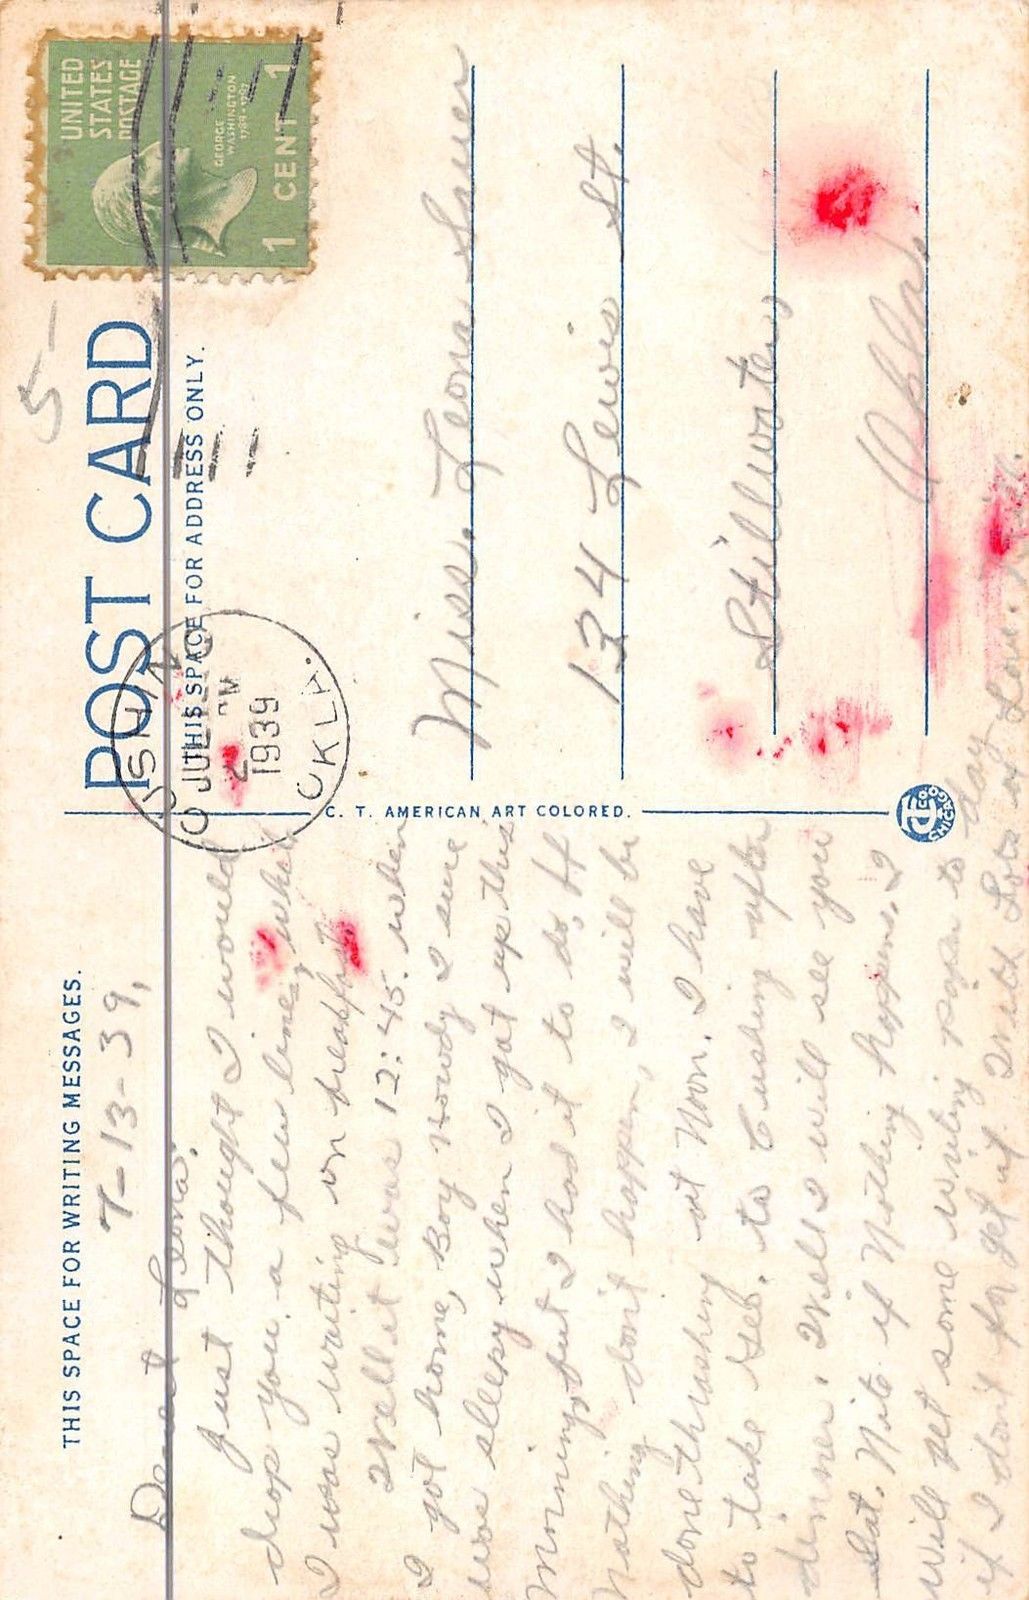 THIS SPACE FOR WRITING MESSAGES.
7-13-39,
Dearest Leona.
Just thought I would
drop you a few lines, while
I was waiting on breakfast.
Well it was 12:45. when
I got home, Boy Howdy I sure
was sleepy when I got up this
Morning, but I had it to do. If
Nothing don't happen, I will be
done thrashing at Noon. I have
to take Geo. to Cushing after
dinner. Well I will see you
Sat. Nite if Nothing happens. I
will get some writing paper to day
if I don't forget it. With Lots of Love.
C. T. AMERICAN ART COLORED.
POST CARD
THIS SPACE FOR ADDRESS ONLY.
5-
UNITED
STATES
POSTAGE
GEORGE
WASHINGTON
1789-1797
1 CENT 1
JUL
1939
OKLA.
Miss. Leona
134 Lewis St.
Stillwater,
Okla.
C.T.
CO
CHICAGO